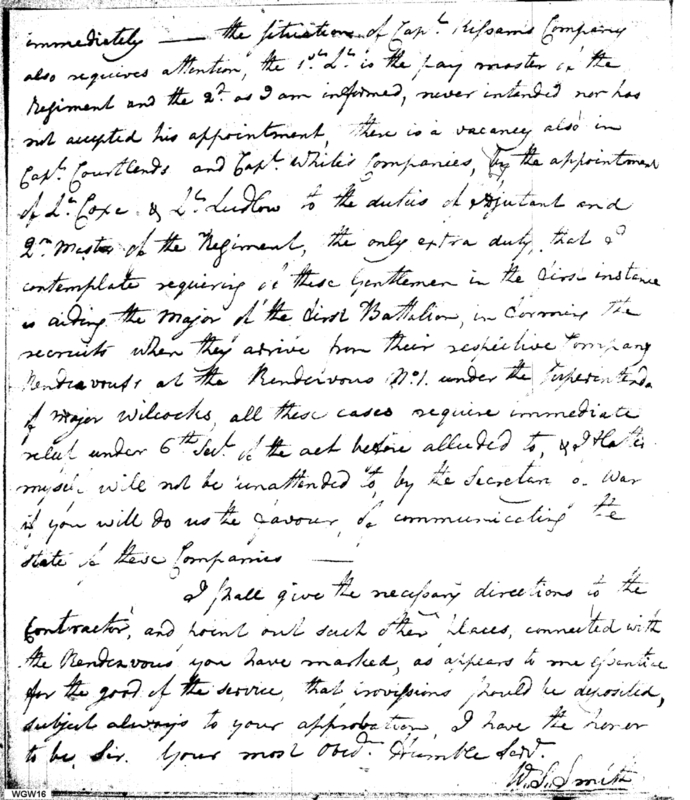 immediately — the situation of Capt. Kissam's Company
also requires attention, the 1st Lt. is the pay master of the
Regiment and the 2d. as I am informed, never intended nor has
not accepted his appointment, there is a vacancy also in
Capt. Courtlands and Capt. White's Companies, by the appointment
of Lt. Coxe & Lt. Ludlow to the duties of Adjutant and
Qr. Master of the Regiment, the only extra duty, that I
contemplate requiring of these Gentlemen in the first instance
is aiding the Major of the first Battalion, in forming the
recruits when they arrive from their respective Company
Rendezvous, at the Rendezvous No. 1. under the Superintenda
of Major Wilcocks, all these cases require immediate
relief under 6th Sect. of the act before alluded to, & I flatter
myself will not be unattended to, by the Secretary of War
if you will do us the favour, of communicating the
state of these Companies —
I shall give the necessary directions to the
Contractor, and point out such other places, connected with
the Rendezvous you have marked, as appears to me essential
for the good of the service, that provissions should be deposited,
subject always to your approbation, I have the honor
to be, Sir. Your most Obedt. Humble Servt.
W. S. Smith
WGW16